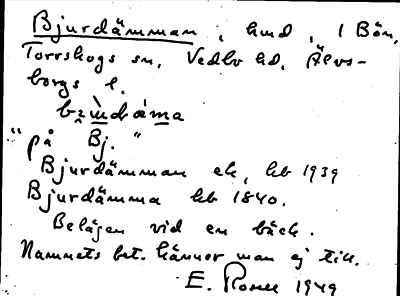 Bjurdämman, hmd, i Bön,
Torrskogs sn, Vedbo hd, Älvs-
borgs l.
"på Bj."
Bjurdämman ek, hb 1939
Bjurdämma hb 1840.
Belägen vid en bäck.
Namnets bet. känner man ej till.
E. 1949